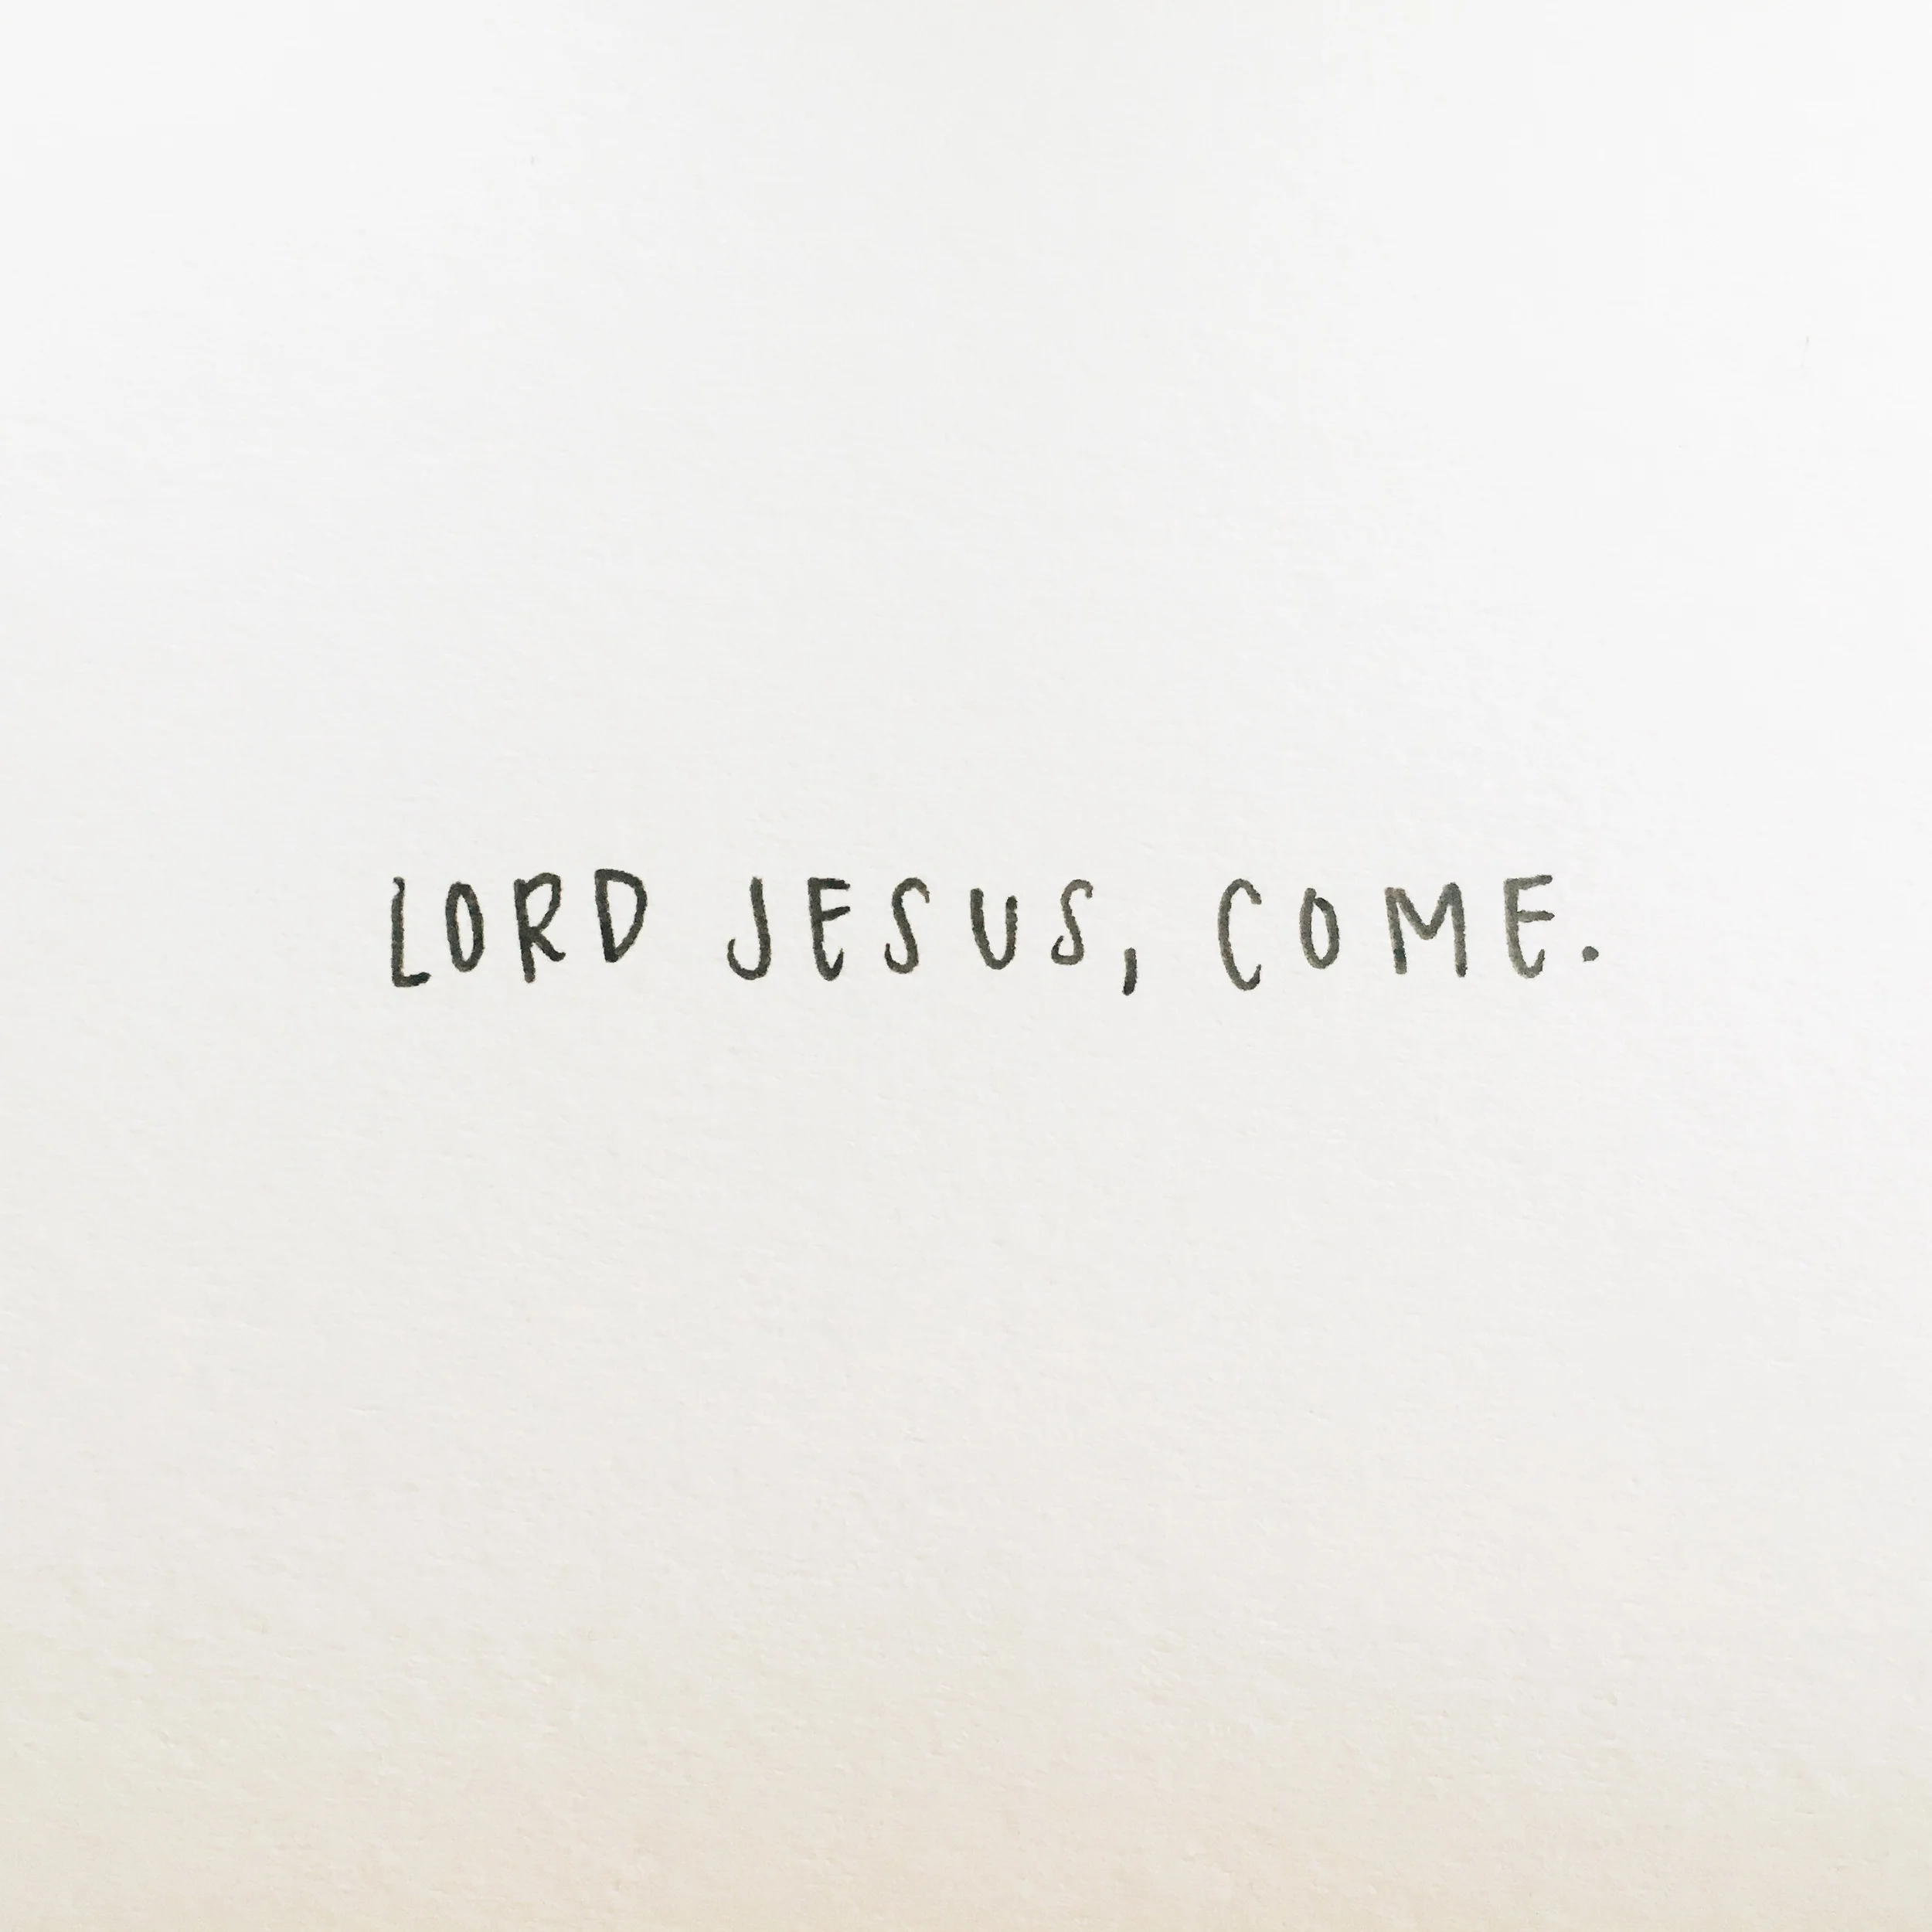 LORD JESUS, COME.